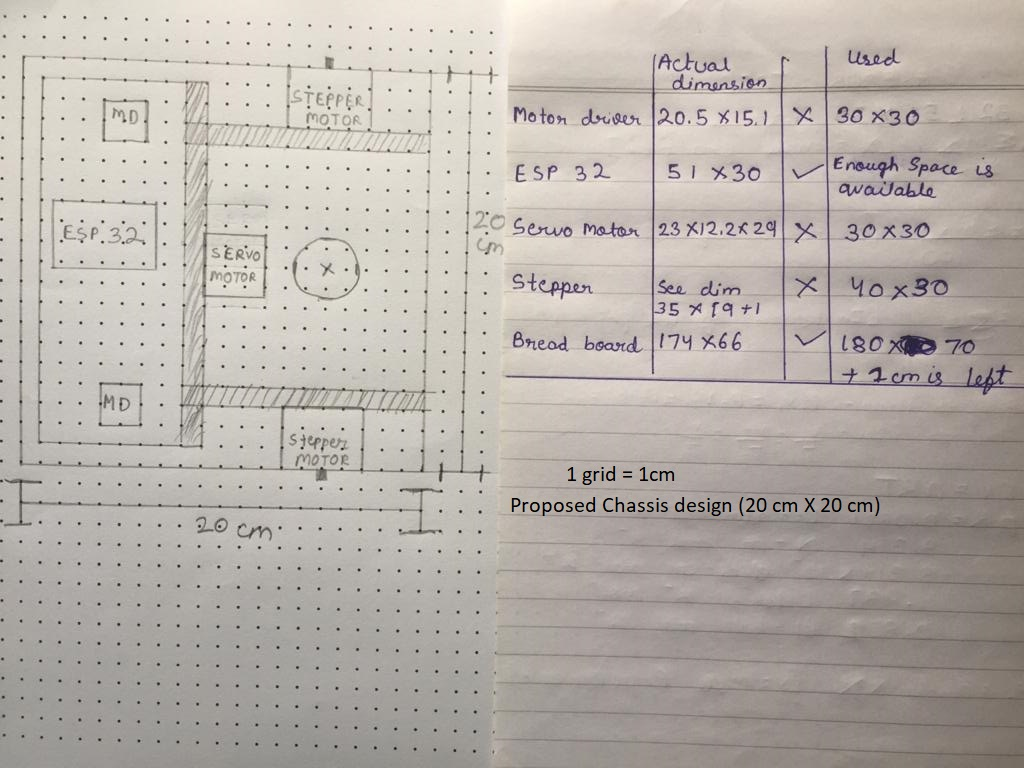 STEPPER
MOTOR
MD
ESP 32
SERVO
MOTOR
X
20
cm
MD
Stepper
MOTOR
20 cm
Actual
dimension
Used
Motor driver 20.5 X 15.1 X 30 X 30
ESP 32 51 X 30 ✓ Enough Space is
available
Servo Motor 23 X 12.2 X 29 X 30 X 30
Stepper See dim X 40 X 30
35 X 19 + 1
Bread board 174 X 66 ✓ 180 X 70
+ 1 cm is left
1 grid = 1cm
Proposed Chassis design (20 cm X 20 cm)